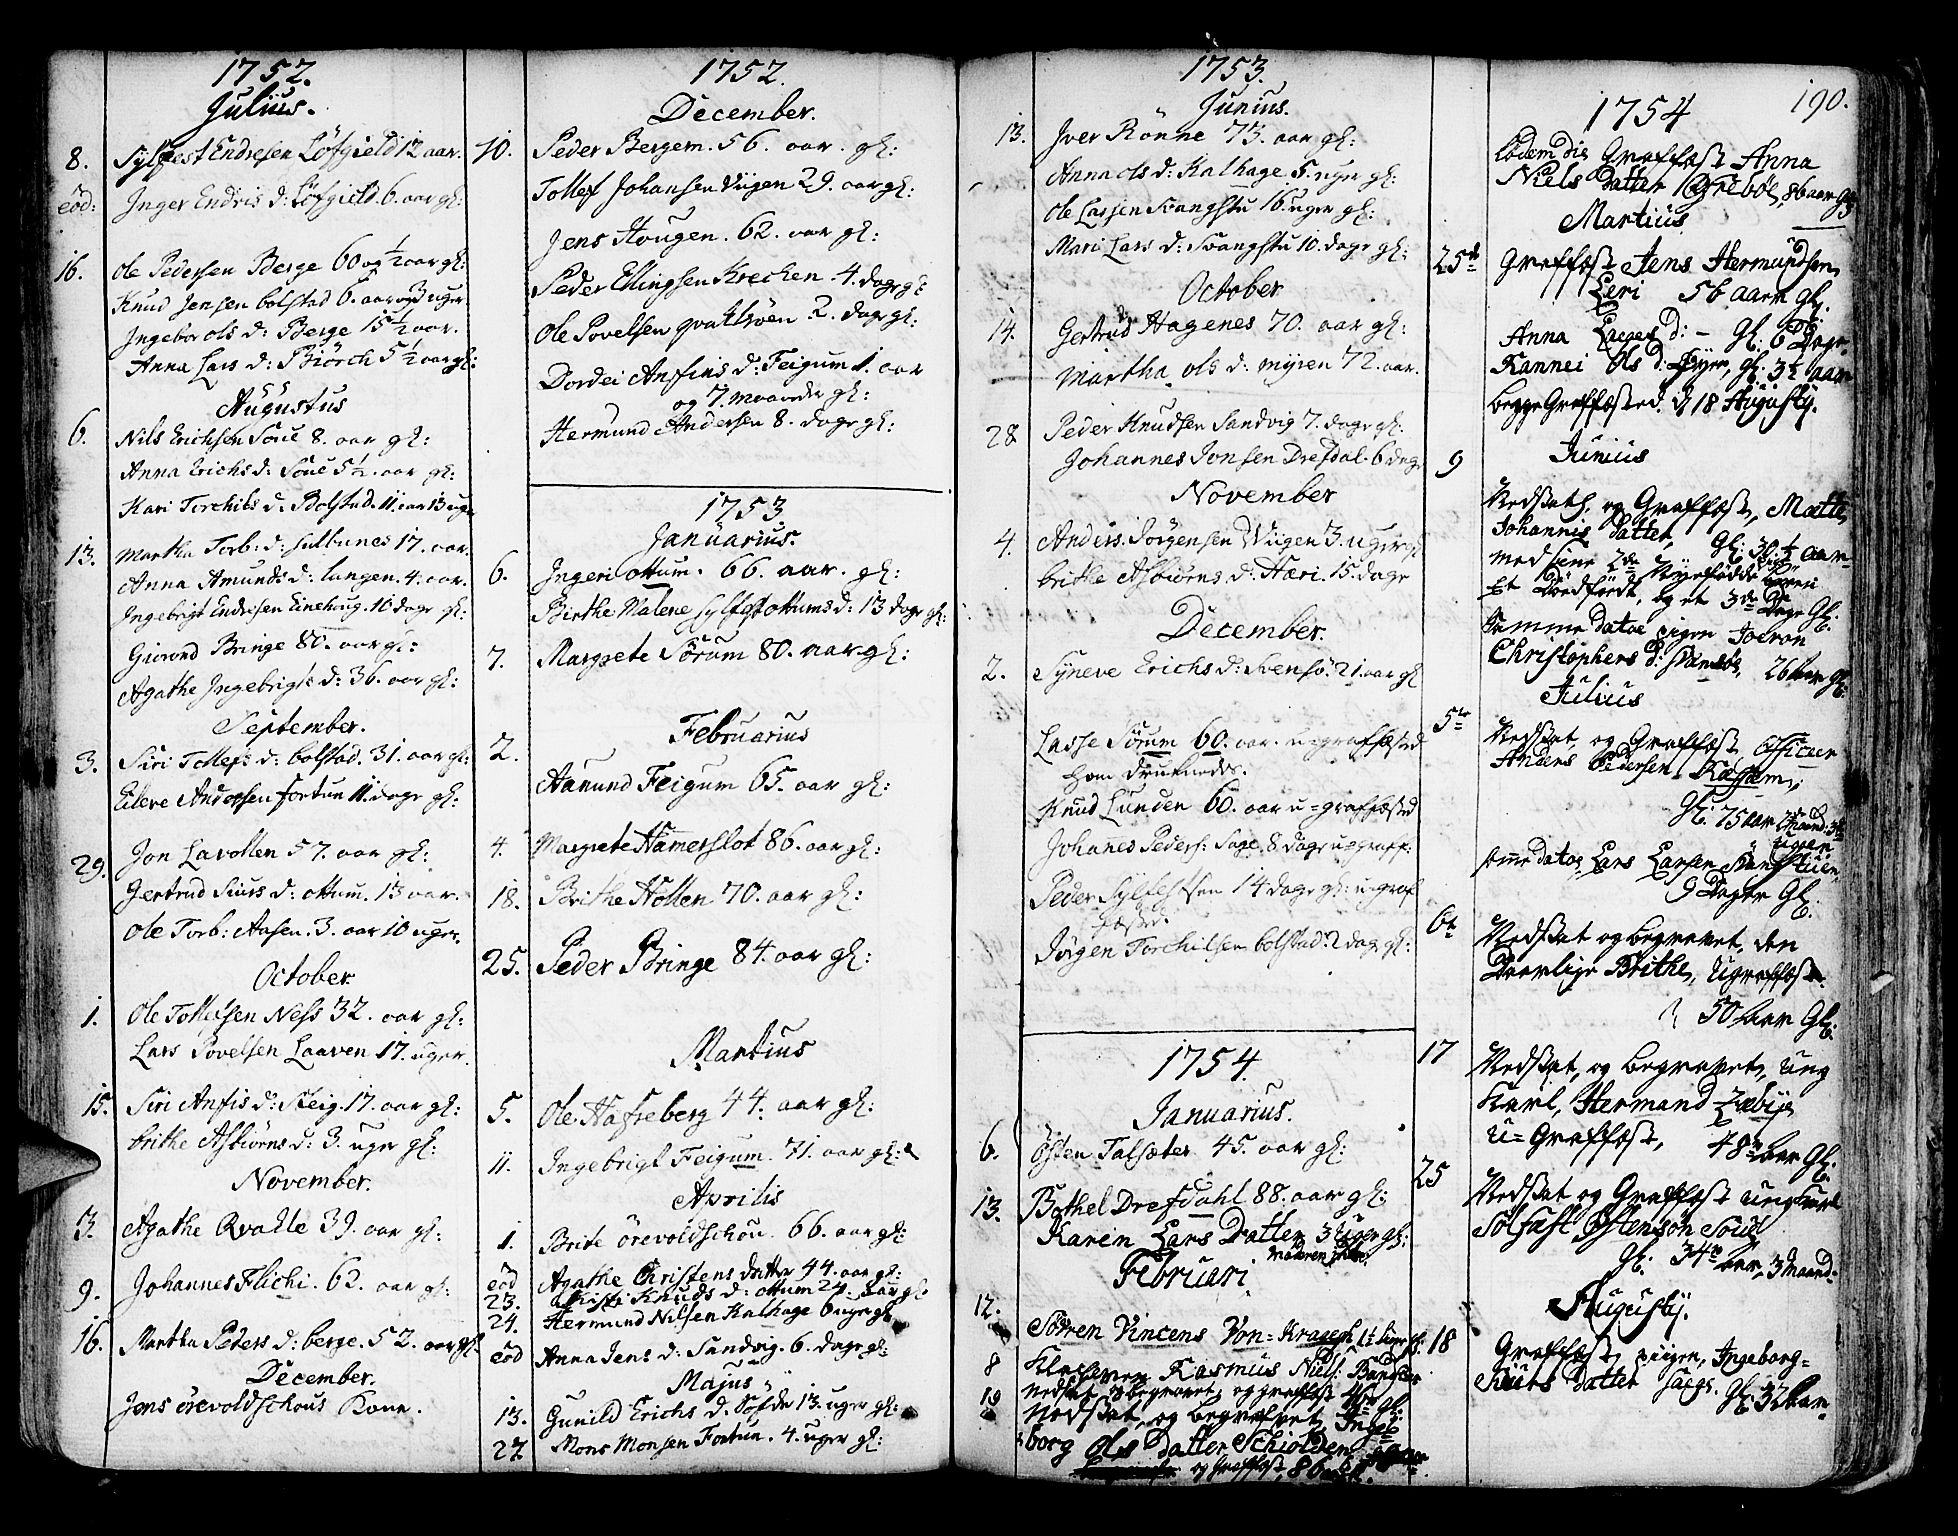 1752.
Julius.
8. Sylfest Endresen Löfgield 12 aar.
eöd: Inger Endris d: Löfgield 6. aar gl:
16. Ole Pedersen Berge 60 og ½ aar gl:
Knud Jensen bolstad 6. aar og 3 uger
Ingebor ols d: Berge 15½ aar.
Anna Lars d: Biörch 5½ aar gl:
Augustus
6. Nils Erichsen Soue 8. aar gl:
Anna Erichs d: Soue 5½. aar gl:
Kari Torchils d: Bolstad. 11. aar 13 uger
13. Martha Torb: d: 17. aar.
Anna Amunds d: langen. 4. aar.
Ingebrigt Endresen 10 dage gl:
Giörond Bringe 80. aar gl:
Agathe Ingebrigts d: 36. aar gl:
September.
3. Siri Tollefs d: bolstad. 31. aar gl:
Eileve Andersen fortun 11. dage gl:
29. Jon Lavollen 57. aar gl:
Gertrud Siurs d: ottum. 13 aar.
Ole Torb: Aasen. 3. aar 10 uger.
October
1. Ole Tollefsen Ness 32. aar gl:
Lars Povelsen Laaven 17. uger.
15. Siri Anfis d: Steig. 17. aar gl:
brithe Asbiörns d: 3. uger gl:
November.
3. Agathe Qvalle 39. aar gl:
9. Johannes Flichi. 62. aar gl:
16. Martha Peders d: berge. 52. aar gl:
December.
Jens örevoldschous Kone.
1752.
December.
10. Peder Bergem. 56. aar. gl:
Tollef Johansen Viigen 29. aar gl:
Jens Hougen. 62. aar gl:
Peder Ellingsen Krechen 4. dage gl:
Ole Povelsen 2. dage gl:
Dordei Anffins d: Feigum 1. aar
og 7. maaneder gl:
Hermund Andersen 8. dage gl:
1753
Januarius.
6. Ingeri ottum. 66. aar. gl:
Birthe Malene sylfest ottums d: 13 dage gl:
7. Margrete Sörum 80. aar gl:
Februarius
2.
Aamund Feigum 65. aar gl:
4. Margrete Hamerslot 86. aar gl:
18. Brithe Hollen 70. aar gl:
25. Peder Bringe 84. aar gl:
Martius
5. Ole Hafreberg 44. aar gl:
11. Ingebrigt Feigum. 71. aar gl:
Aprilis
1. Brite örevoldschou. 66. aar gl:
eöd Agathe Christens datter 44. aar gl:
23. Knuds d: ottum 24. aar gl
24. Hermund Nilsen Kalhage 6 uger gl
eöd Anna Jens d: Sandvig. 6. dage gl:
Majus
13. Gunild Erichs d: 13. uger gl:
27. Mons Monsen Fortun. 4. uger gl:
1753.
Junius.
13. Iver Rönne 73. aar gl:
Anna ols d: Kalhage 5. uger gl:
Ole Lassen Svangstu 16. uger gl:
Mari Lars d: Svangstu 10. dage gl:
October
14. Gertrud Hagenes 70. aar gl:
Martha ols d: myren 72. aar.
28 Peder Knudsen Sandvig 7. dage gl:
Johannes Jonsen Dresdal. 6 dage
November
4. Anders Jörgensen Wiigen 3. uger gl
brithe Asbiörns d: Hæri. 15. dage
December.
2. Syneve Erichs d: Svensö. 21. aar gl
Lasse Sörum 60. aar. u=graffæsted
hom druknede.
Knud Lunden 60. aar u=grafæsted
Johanes Peders: Sage. 8 dage u=graff:
Peder Sylfestsen 14 dage gl: u:graf
fæste.
Jörgen Torchilsen bolstad: 2 dage gl:
1754.
Januarius.
6. östen Talsæter 45. aar gl:
13. Bothel Dresdahl 88. aar gl:
Karen Lars Datter 3½ uger gl:
Februari
12. Sören Vincens Von=Kragegh
8 Rasmus Niels:
19 nedsat, og begravet, og graffæst
Nedsat, og begravet Inge
borg Ols Datter Schiolden
og Graffæst, 86
190.
1754
Graffæst Anna
Niels Datter Grebøl, 86 aar gl:
Martius
25de Graffæst Jens Hermundsen
Leri 56 aar gl.
Anna d: - gl: 6 Dage
Rannei Ols d: gl: 3½ aar
begge Graffæsted. d 18 Augusty.
Junius
9 Nedsat, og Graffæst, Mætte
Johannis Datter, gl: 30½ aar
med siene 2de Nyefødde börn
Et Dödfödt, og et 3de Dage gl.
Samme Dato pigen Joeron
Christophers d: 26 aar gl:
Julius
5te Nedsat, og Graffæst, Officeer
Anders Pedersen
gl: 75 aar
ugger
samme dato, Lars Larsen Svangstuen
9 Dage Gl.
6te Nedsat og begravet, den
Brithe, Ugraffæst
50 aar Gl.
17 Nedsat, og begravet, ung
Karl, Hermand
u=Graffæst, 48 aar Gl.
25 Nedsat og Graffæst ung karl
Solfast Östensön
gl: 34 aar, 3 Maand:
Augusty.
18 Graffæst, piigen, Ingeborg=
Siurs Datter gl: 32 aar